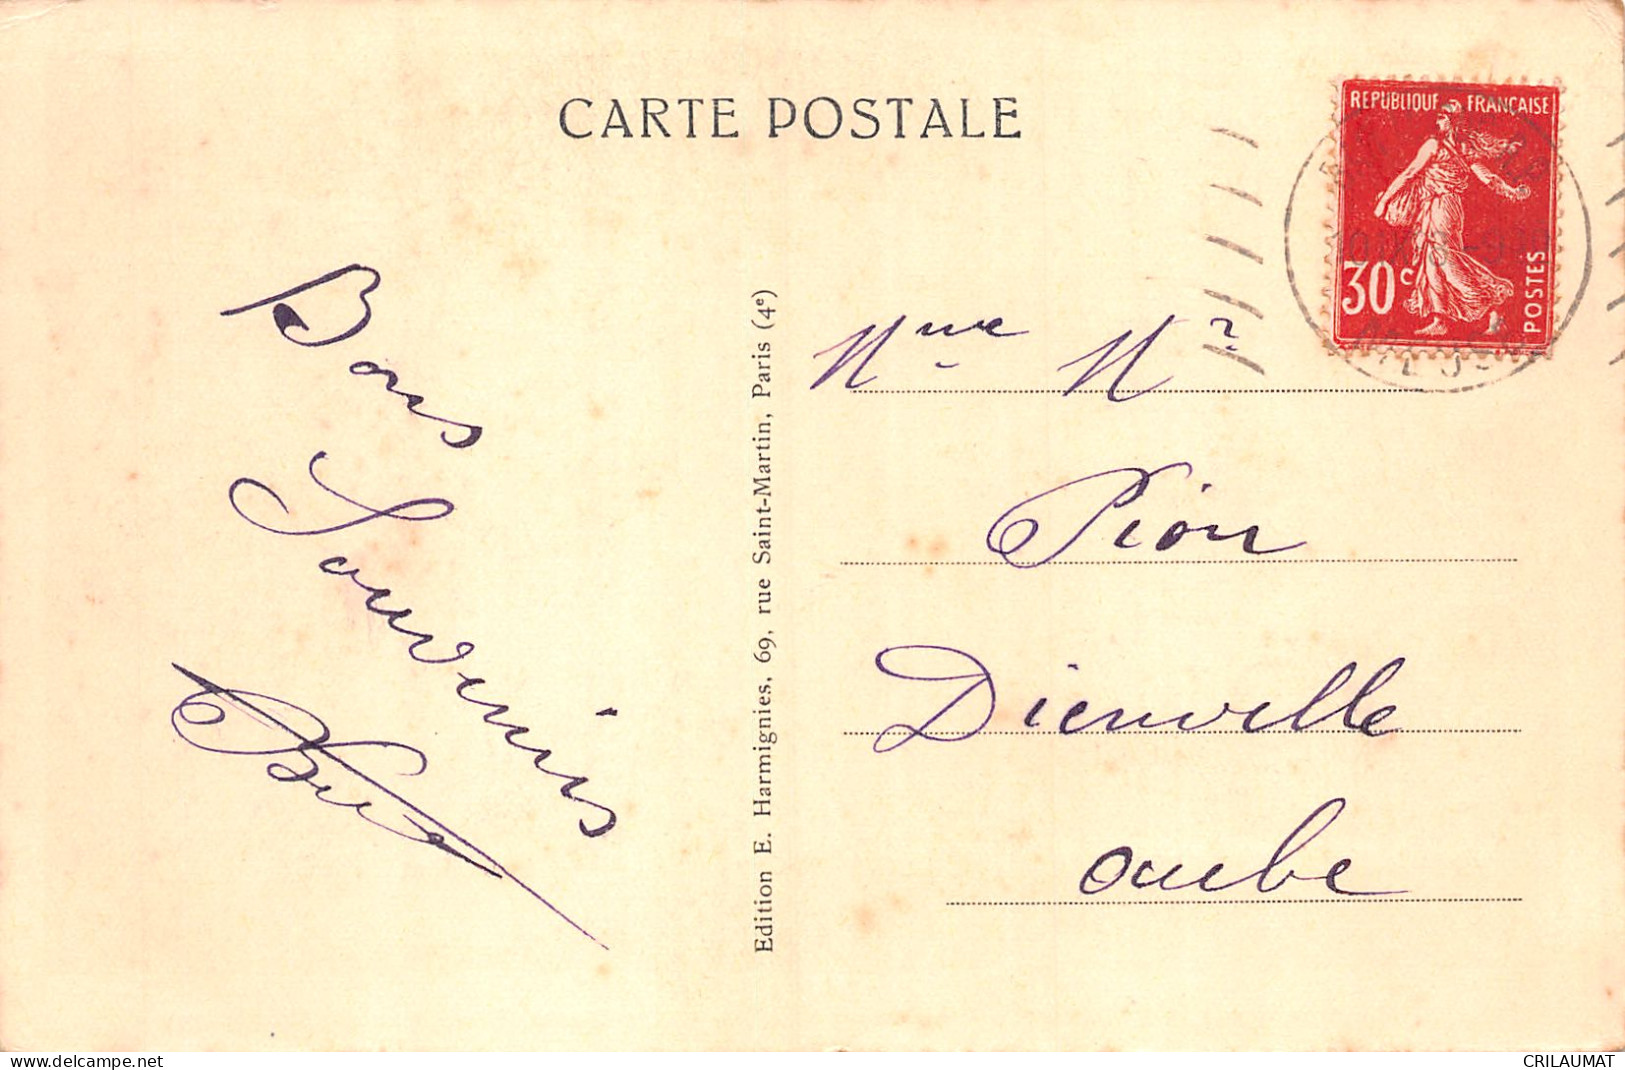 CARTE POSTALE
REPUBLIQUE FRANÇAISE
30c
POSTES
Bons
Souvenirs
Edition E. Harmignies, 69, rue Saint-Martin, Paris (4e)
Mme Mr
Pion
Dienville
Aube
www.delcampe.net
CRILAUMAT